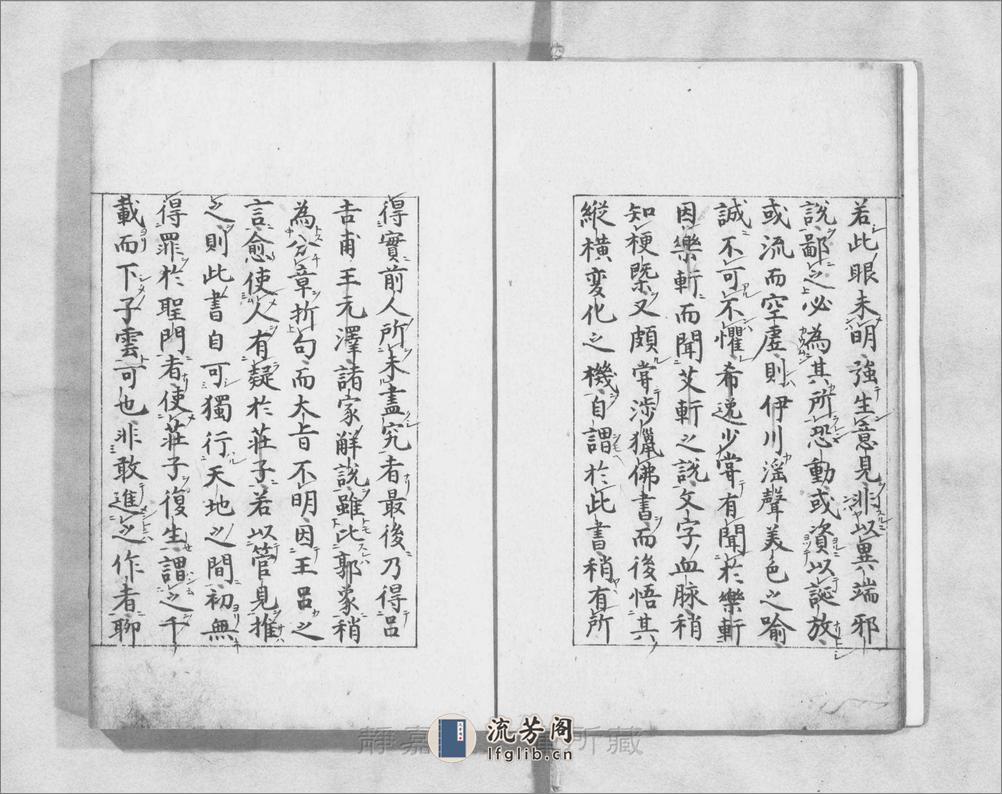 若此眼未明強生意見非以異端邪
說鄙之必為其所恐動或資以誕放
或流而空虛則伊川淫聲美色之喻
誠不可不懼希逸少嘗有聞於樂軒
因樂軒而聞艾軒之說文字血脉稍
知梗槩又頗嘗涉獵佛書而後悟其
縱橫変化之機自謂於此書稍有所
得實前人所未盡究者最後乃得呂
吉甫王元澤諸家解說雖比郭象稍
為分章折句而大旨不明因王呂之
言愈使人有疑於莊子若以管見推
之則此書自可獨行天地之間初無
得罪於聖門者使莊子復生謂之千
載而下子雲可也非敢進之作者聊
靜嘉 所藏
流芳阁
lfglib.cn